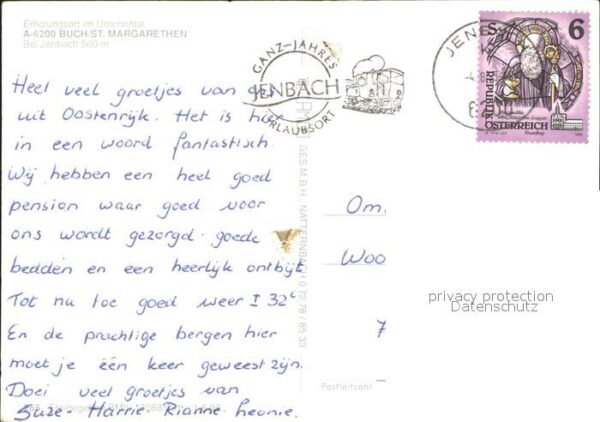 Erholungsort im Unterinntal
A-6200 BUCH ST. MARGARETHEN
Bei Jenbach 560 m
GANZ-JAHRES
JENBACH
URLAUBSORT
JENB
6
REPUBLIK
ÖSTERREICH
Heel veel groetjes van ons
uit Oostenrijk. Het is hier
in een woord fantastisch.
Wij hebben een heel goed
pension waar goed voor
ons wordt gezorgd. goede
bedden en een heerlijk ontbijt
Tot nu toe goed weer ± 32°
En de prachtige bergen hier
moet je één keer geweest zijn.
Doei veel groetjes van
Suze - Harrie - Rianne - Leonie.
GES.M.B.H., NATTERNBACH 0 72 78 / 85 33
Om.
Woo
7
Postleitzahl
privacy protection
Datenschutz